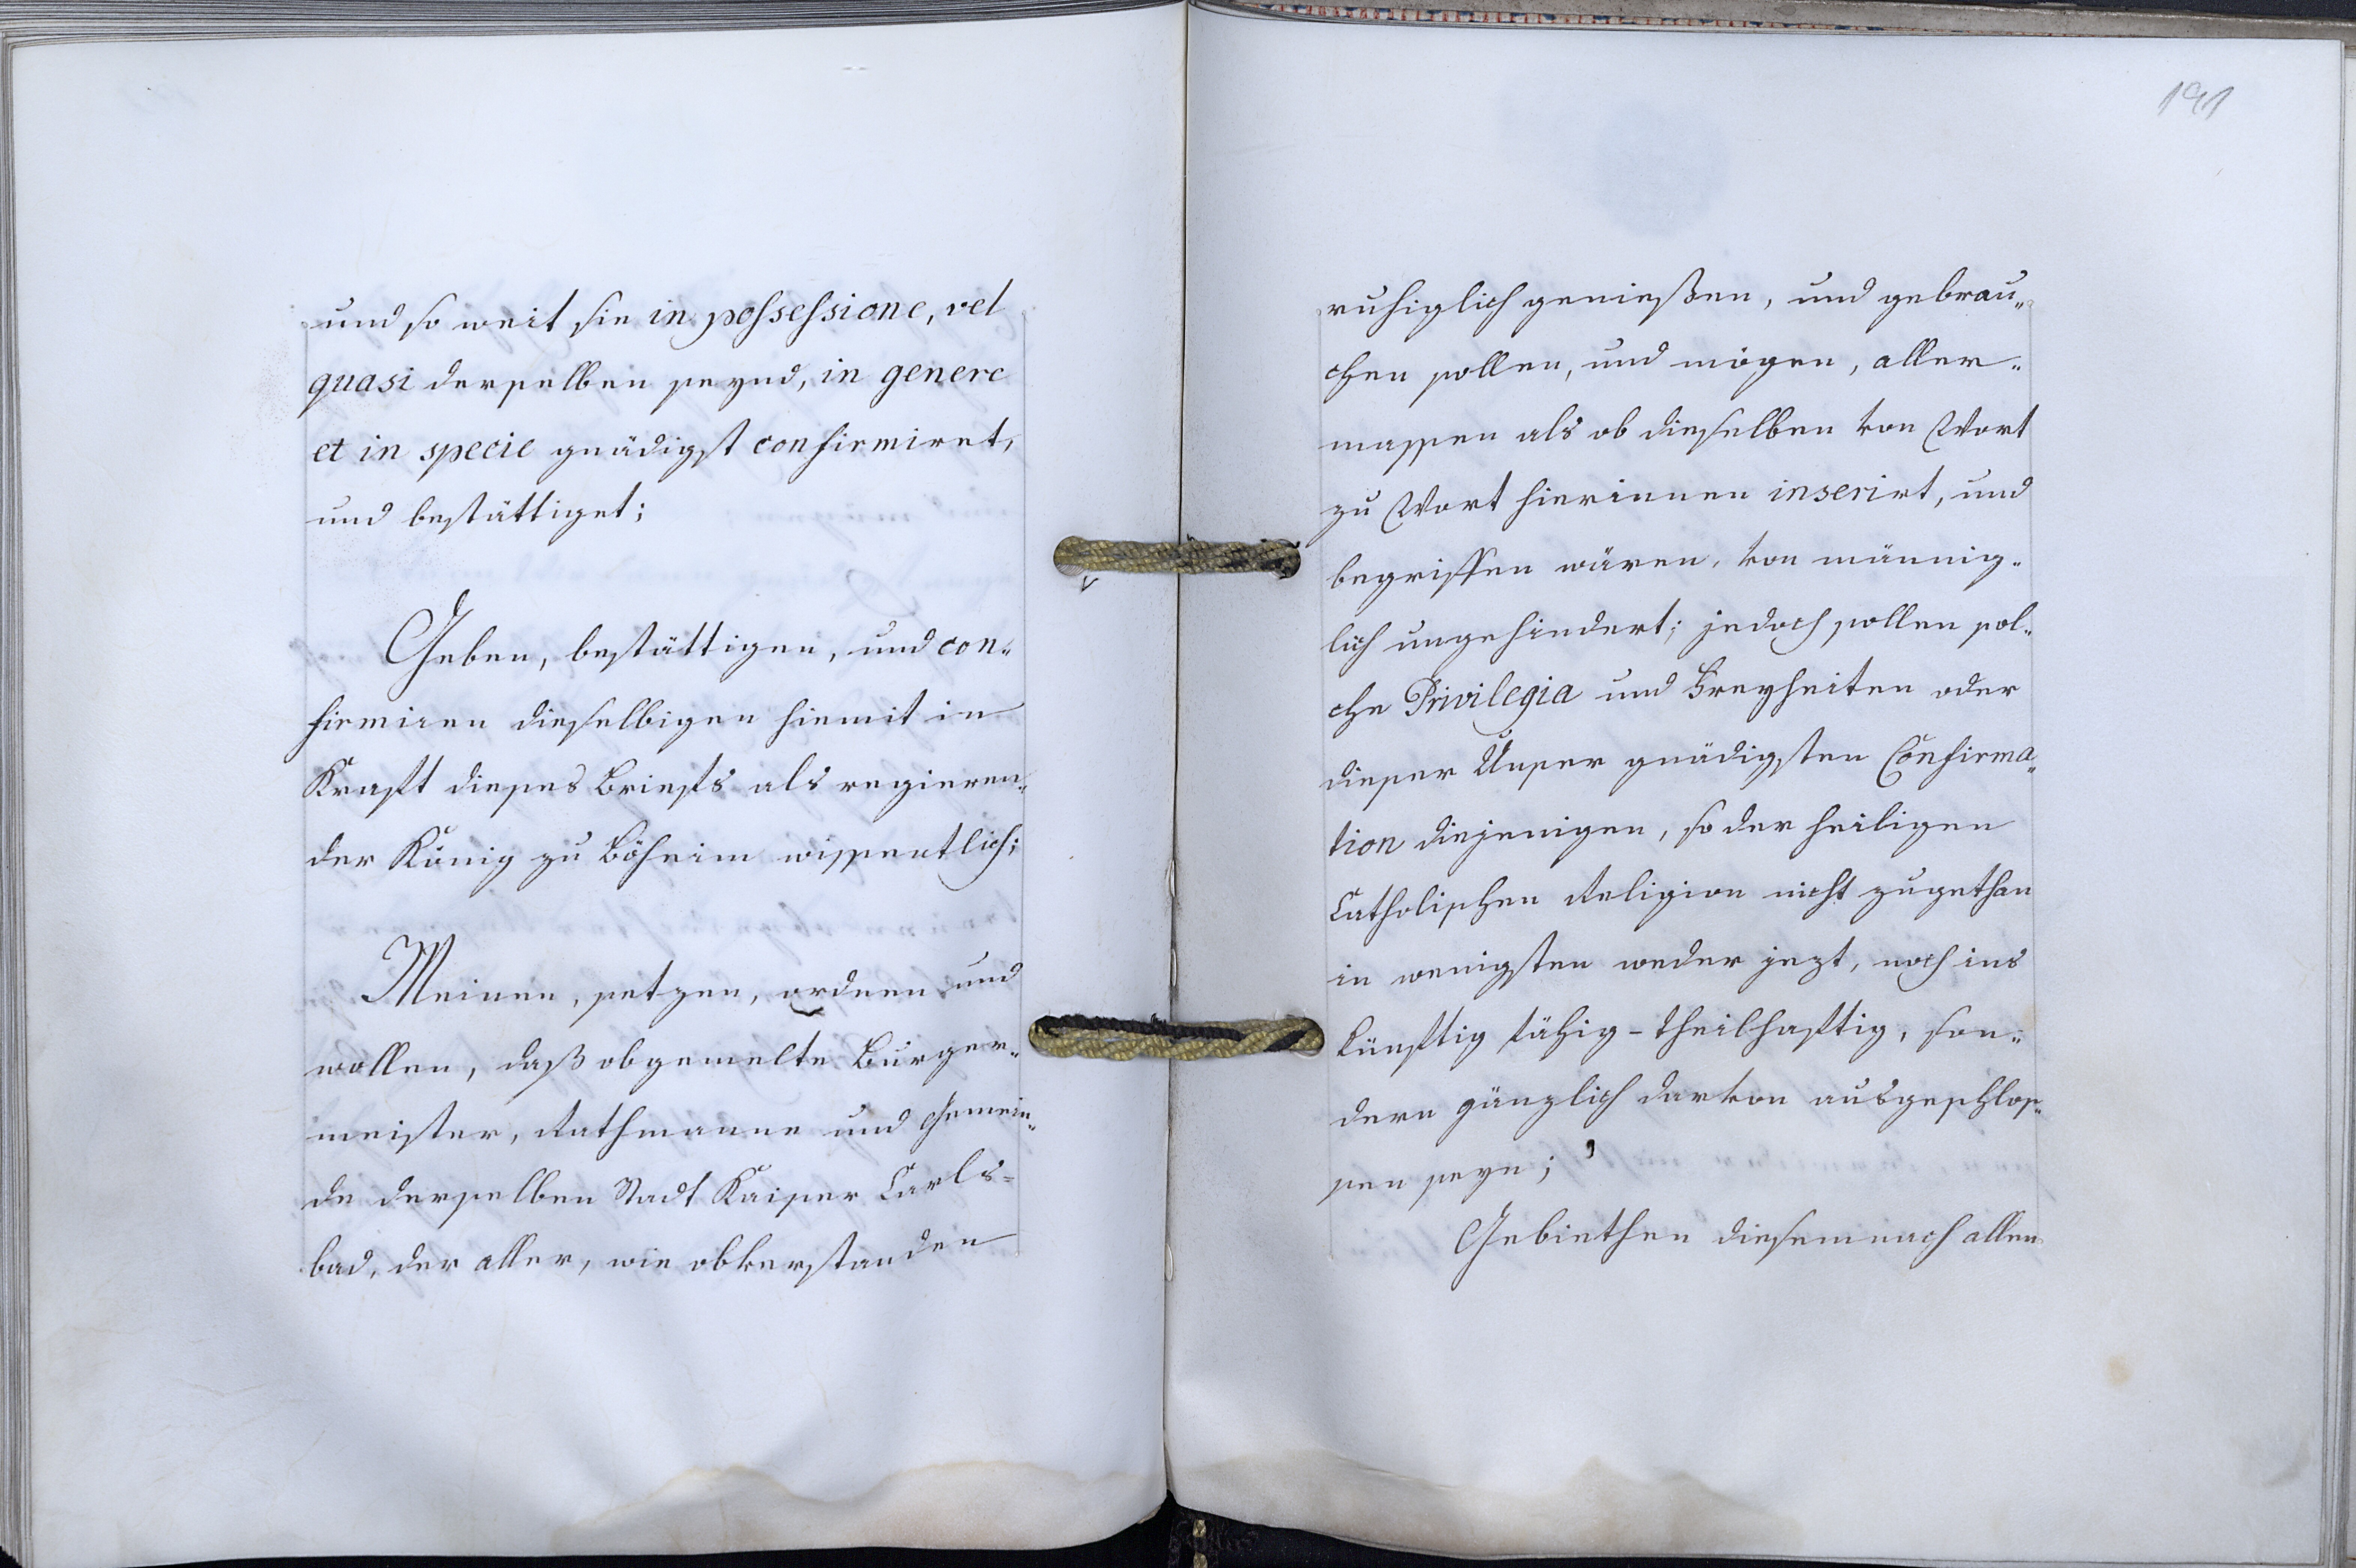 und so weit sie in possessione, vel
quasi derselben seynd, in genere
et in specie gnädigst confirmiret,
und bestättiget;
Geben, bestättigen, und con„
firmiren dieselbigen hiemit in
Krafft dieses Briefs als regieren„
der König zu Böheim wissentlich;
Meinen, setzen, ordnen und
wollen, daß obgemelte Burger„
meister, Rathmanne und Gemein„
de derselben Stadt Kaiser Carls=
bad, der aller, wie obverstanden
191
ruhiglich genießen, und gebrau„
chen sollen, und mögen, aller„
massen als ob dieselben von Wort
zu Wort hierinnen inserirt, und
begriffen wären, von männig„
lich ungehindert; jedoch sollen sol„
che Privilegia und Freyheiten oder
dieser Unser gnädigsten Confirma„
tion diejenigen, so der heiligen
Catholischen Religion nicht zugethan
in wenigsten weder jezt, noch ins
künfftig fähig-theilhafftig, son„
dern gänzlich darvon ausgeschlos„
sen seyn;
Gebiethen diesemnach allen